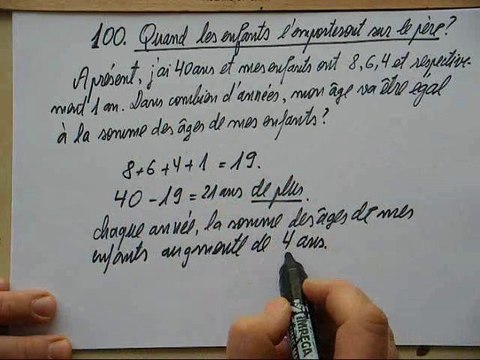 100. Quand les enfants l'emporteront sur le père?
A présent, j'ai 40 ans et mes enfants ont 8, 6, 4 et respective-
ment 1 an. Dans combien d'années, mon âge va être égal
à la somme des âges de mes enfants?
8+6+4+1 = 19.
40 - 19 = 21 ans de plus.
chaque année, la somme des âges de mes
enfants augmente de 4 ans.